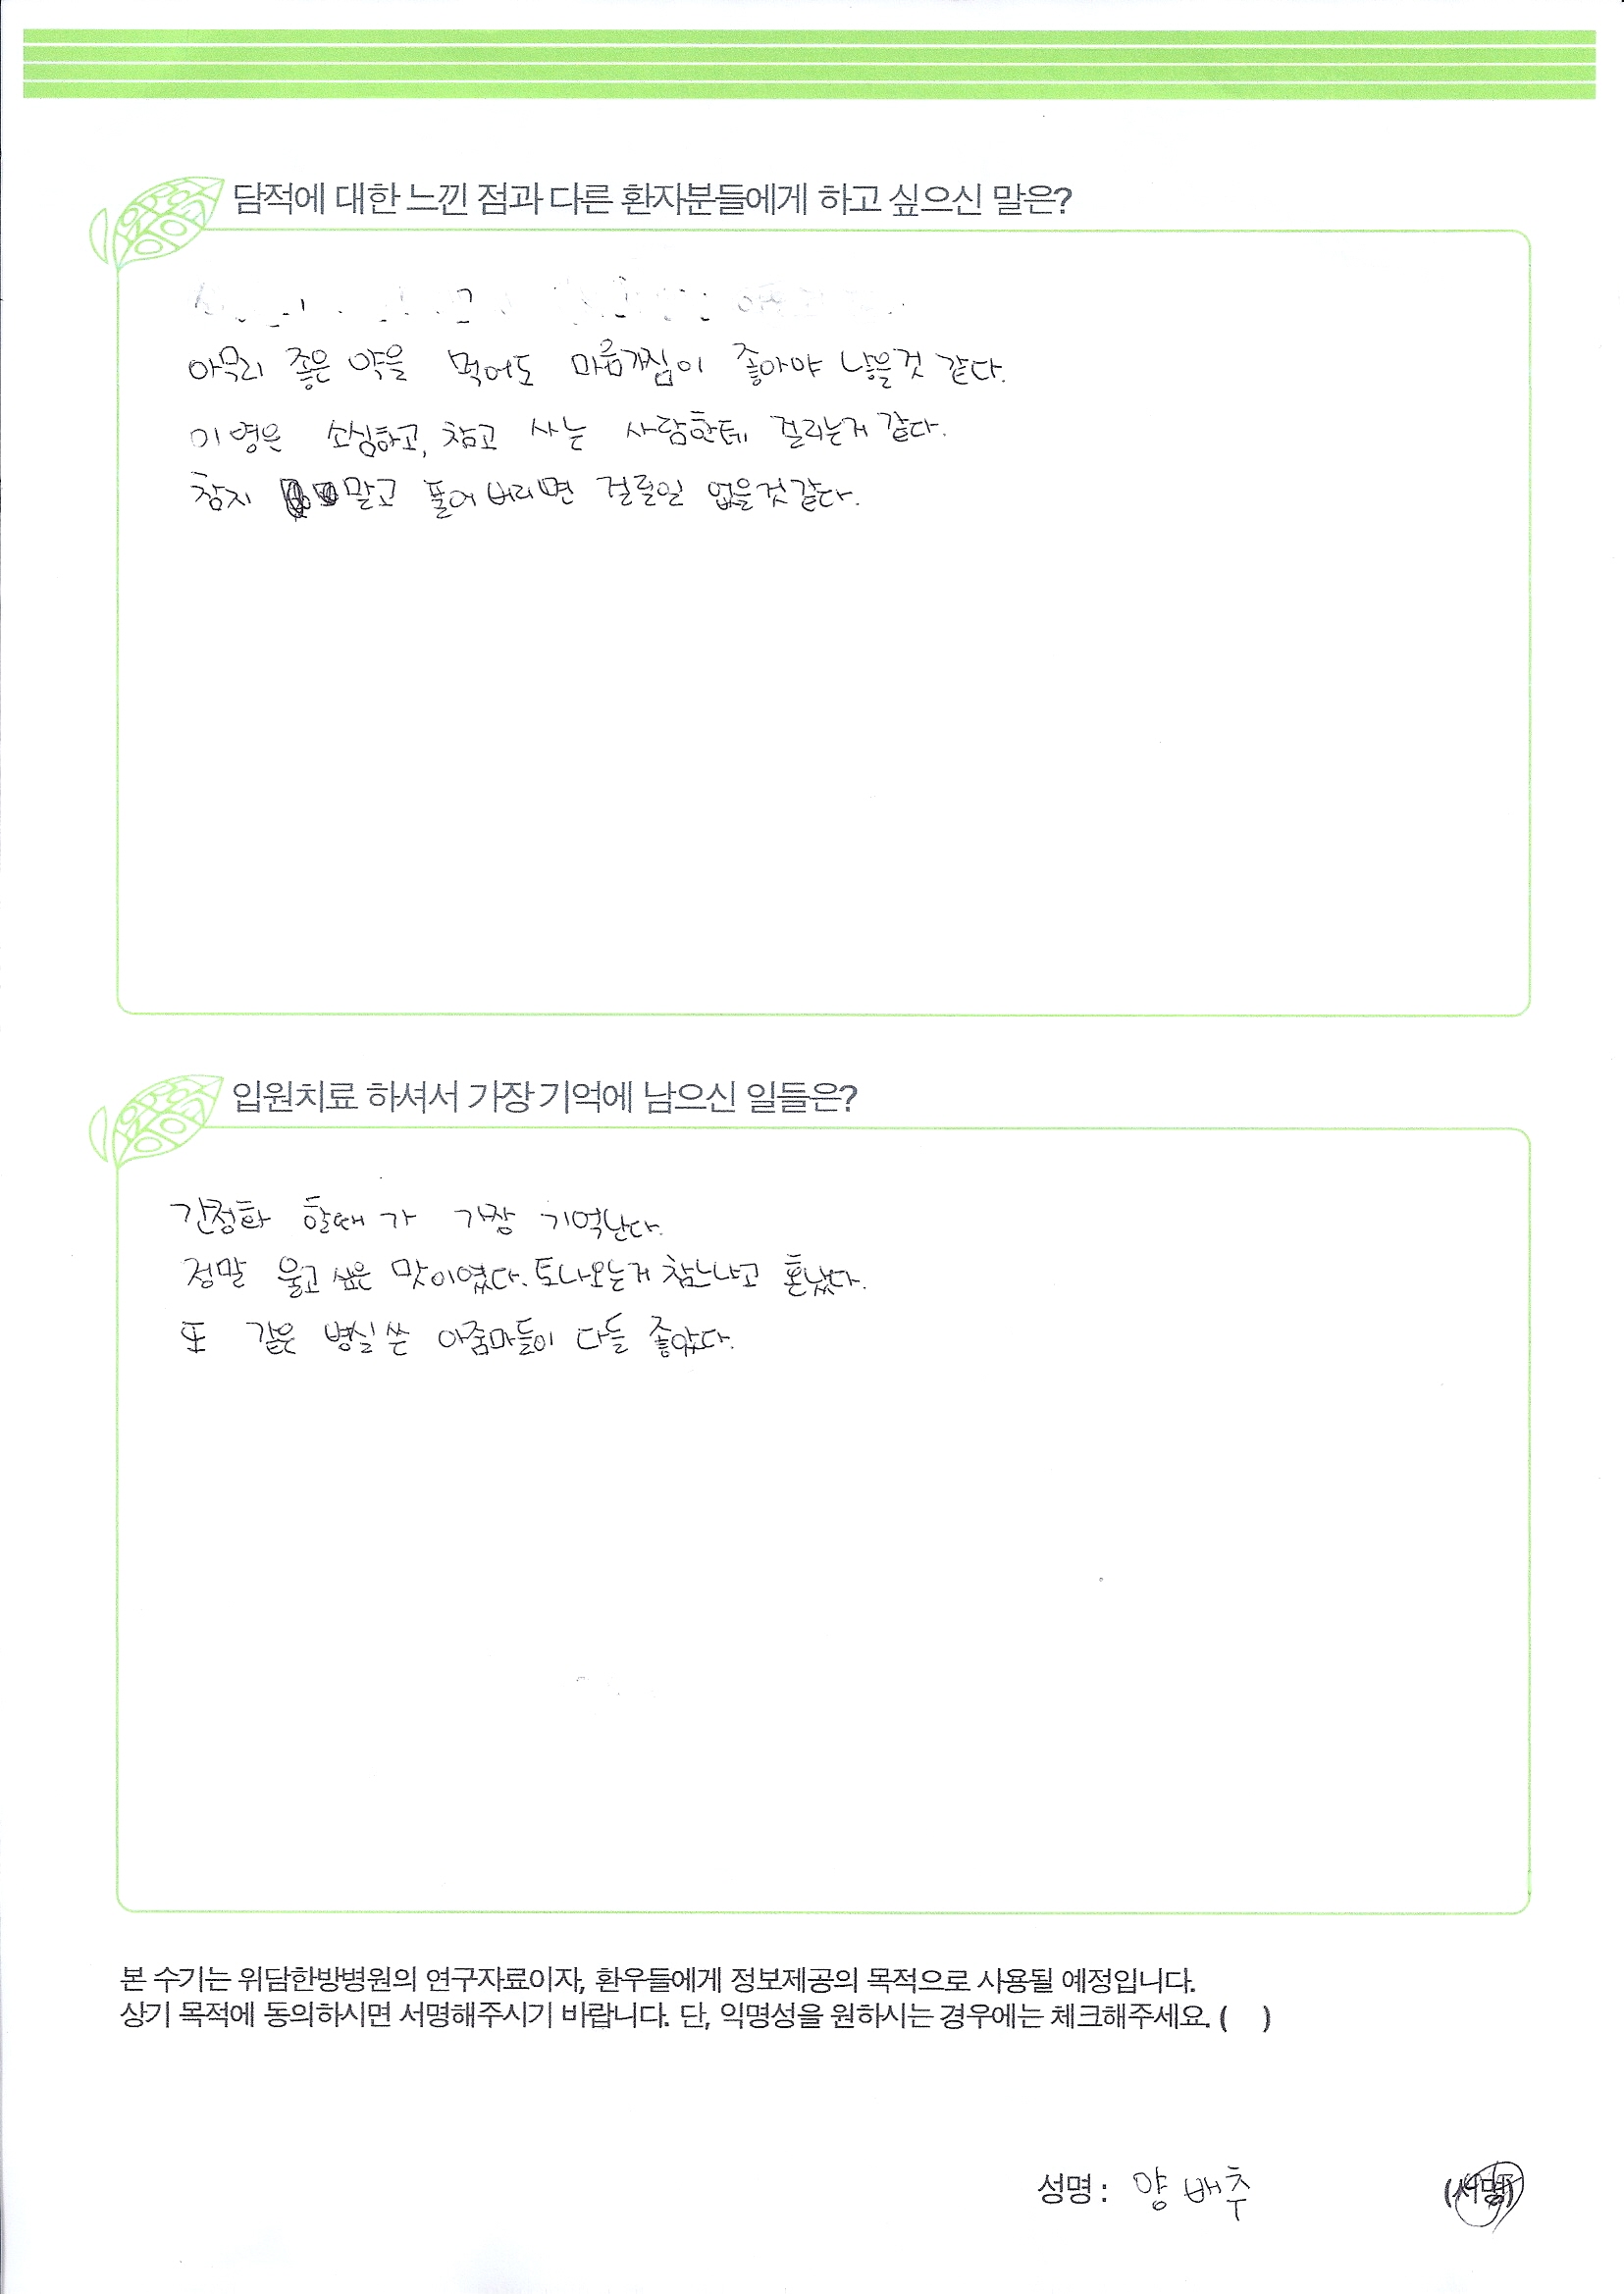 담적에 대한 느낀 점과 다른 환자분들에게 하고 싶으신 말은?
아무리 좋은 약을 먹어도 마음가짐이 좋아야 낳을것 같다.
이병은 소심하고, 참고 사는 사람한테 걸리는거 같다.
참지 말고 풀어 버리면 걸릴일 없을것 같다.
입원치료 하셔서 가장 기억에 남으신 일들은?
간정화 할때가 가장 기억난다.
정말 울고 싶은 맛이였다. 토나오는거 참느냐고 혼났다.
또 같은 병실 쓴 아줌마들이 다들 좋았다.
본 수기는 위담한방병원의 연구자료이자, 환우들에게 정보제공의 목적으로 사용될 예정입니다.
상기 목적에 동의하시면 서명해주시기 바랍니다. 단, 익명성을 원하시는 경우에는 체크해주세요. ( )
성명 : 양배추 (서명)